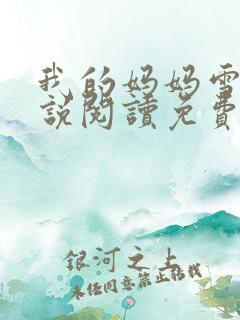 我的妈妈雪
說閱讀免費
銀河之上
未经同意禁止转载